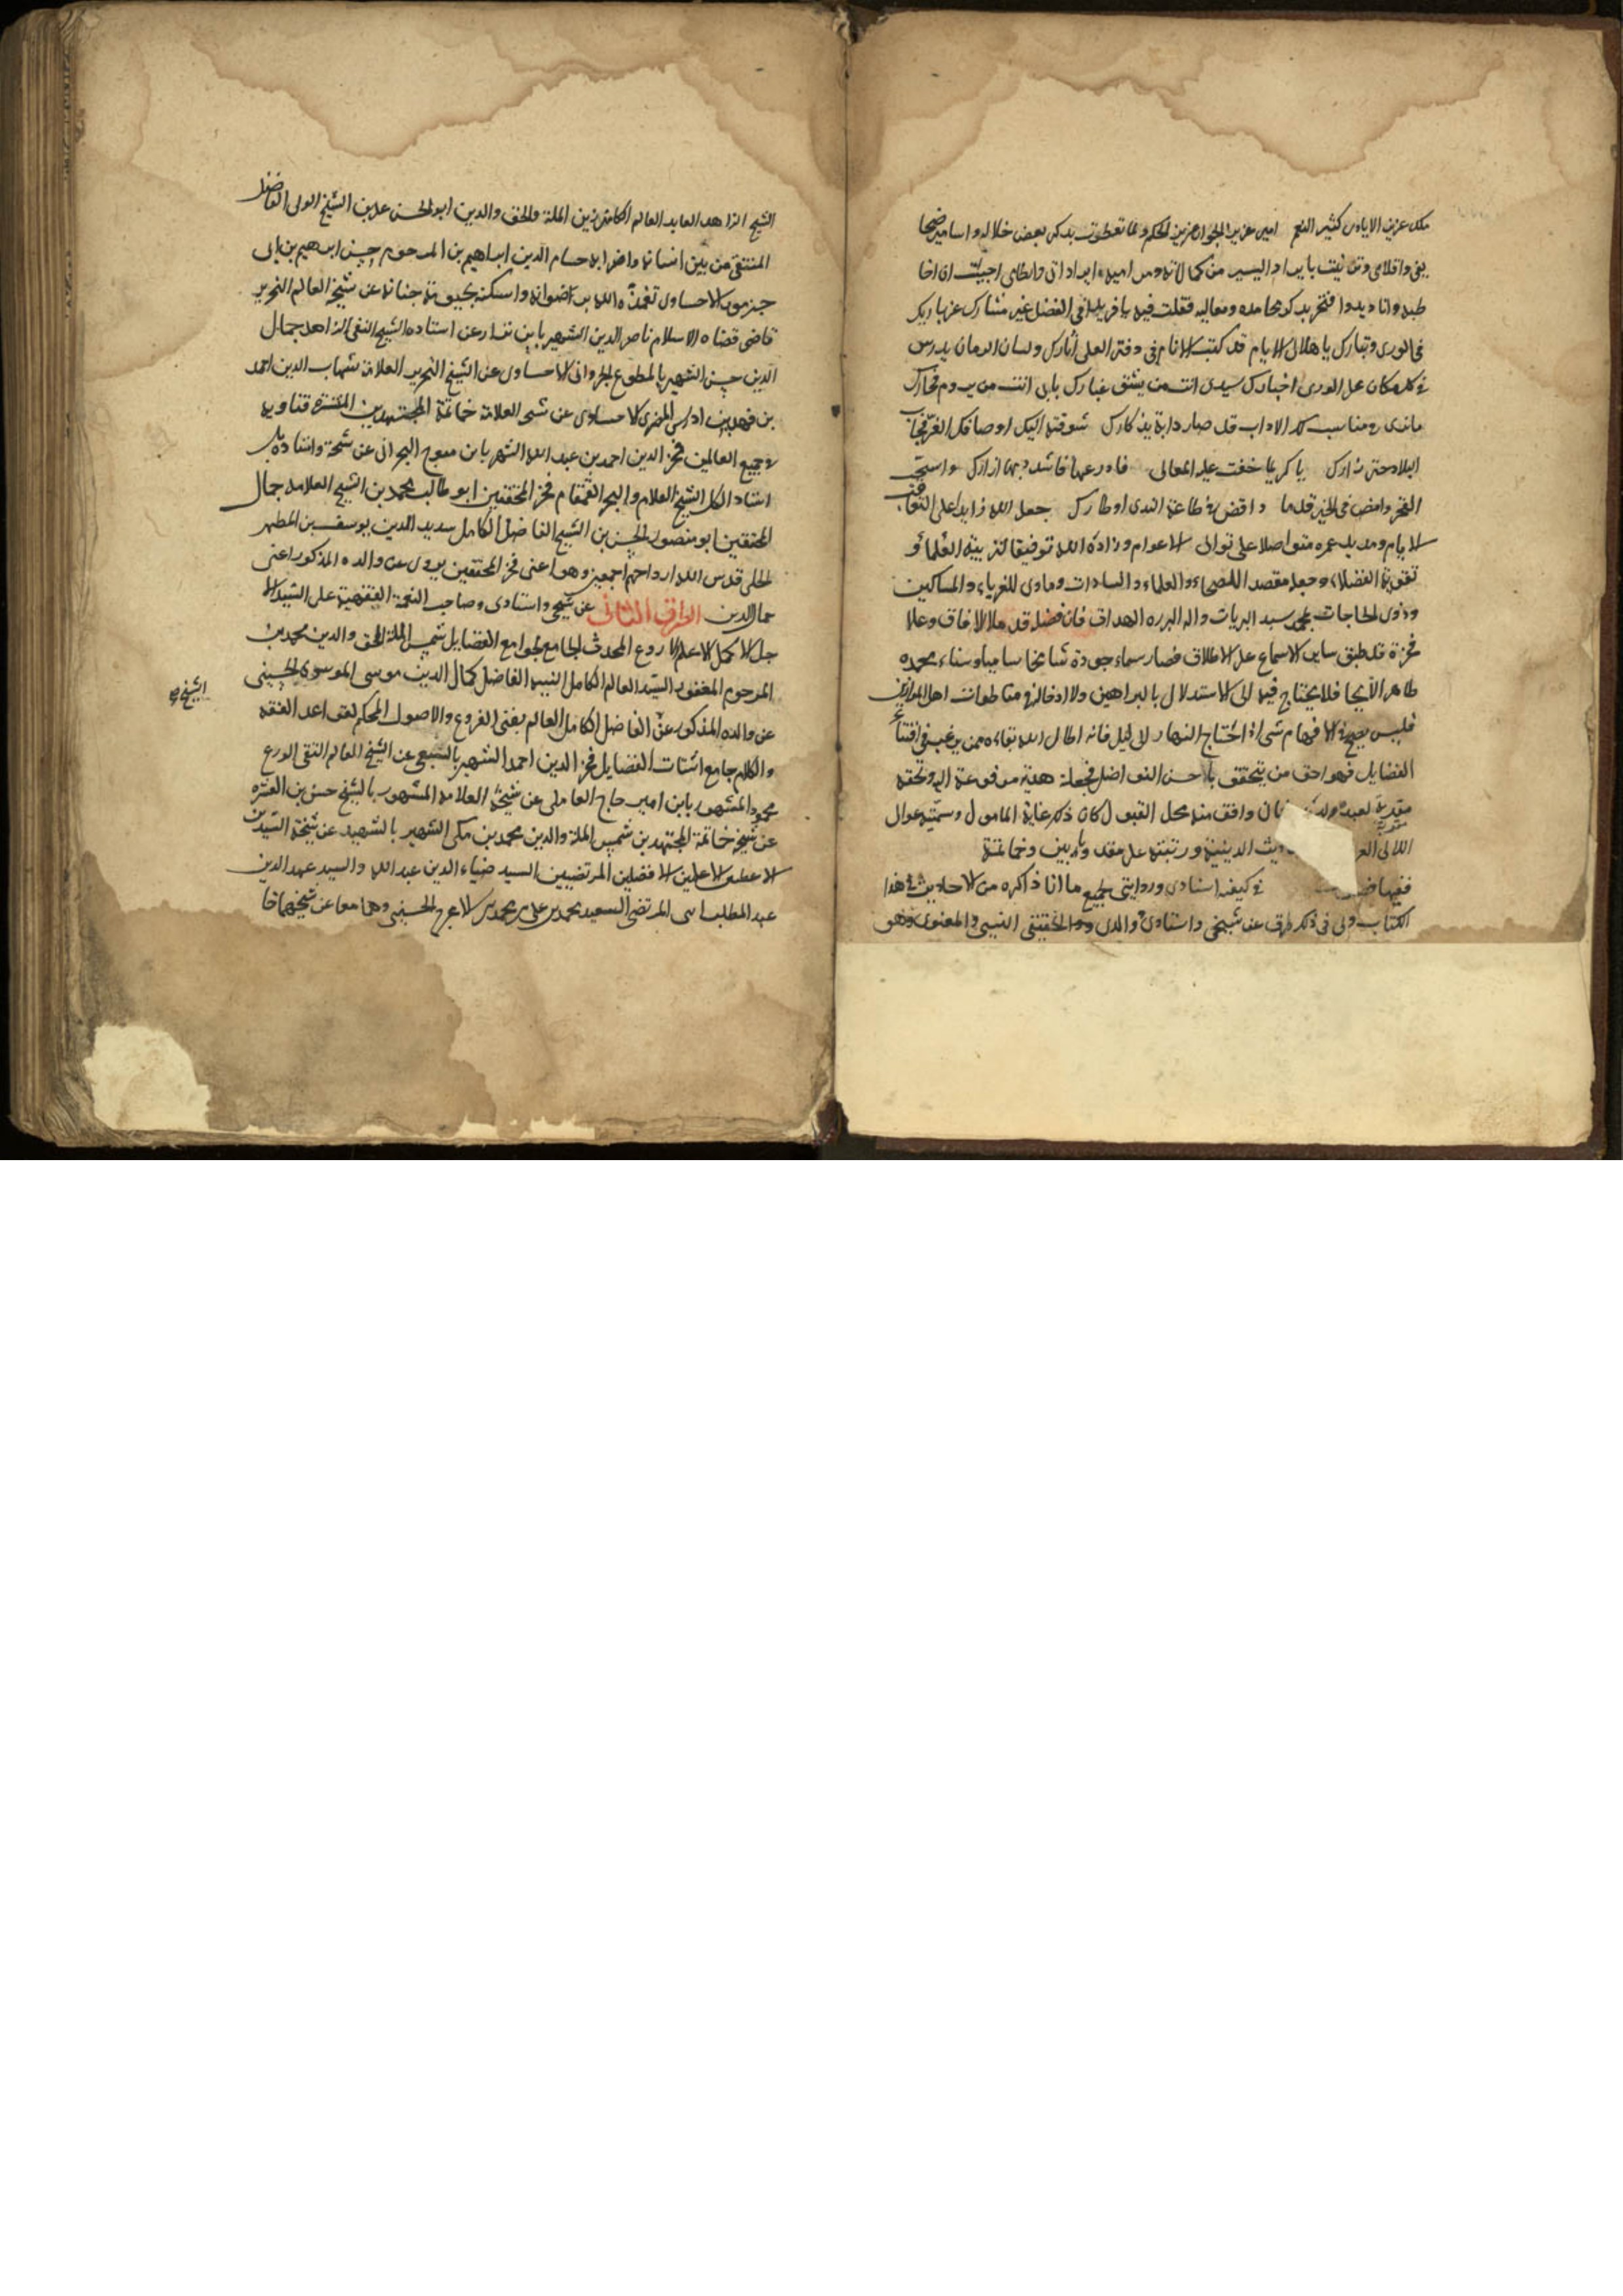 ملك عزيز الايادي كثير النعم امير عزيز الجوار عزيز الحكم ولما تعطرت بذكر بعض خلاله واسامير ضحا
يفي واقلامي وتزينت بايراد اليسير من كمالاته ومراميه ايراداتي واحكامي اجبت ان اخا
طبه واناديه وافتخر بذكر محامده ومعاليه فقلت فيه يا فريدا في الفضل غير مشارك عز باريك
في الورى وتبارك يا هلال الايام قد كتب الانام في دفتر العلى آثارك ولسان الزمان يدرس
في كل مكان على الورى اخبارك سيدي انت من يشق غبارك بابي انت من يروم فخارك
مناسب كل الاداب قد صار دابة يذكارك شوقته اليك اوصافك الغر فجاب
البلاد حتى زارك يا كريما خفت عليه المعالى فادرعها فاشدد بها ازارك واستجد
الفخر وامض في الخير قدما واقض في طاعة الندى اوطارك جعل الله زايدا على التعاقب
الايام ومديد عمره متواصلا على توالى الاعوام وزاده الله توفيقا لتربية العلماء و
تقوية الفضلاء وجعله مقصد الفصحاء والعلماء والسادات وماوى للغرباء والمساكين
وذوى الحاجات بمحمد سيد البريات واله البررة الهداة فان فضله قد ملا الافاق وعلا
فخره قد طبق ساير الاسماع على الاطلاق فصار سماء جوده شامخا ساميا وسناء مجده
ظاهر الانحا فلا يحتاج فيه الى الاستدلال بالبراهين ولا ادخاله في مقاطعات اهل الموازين
فليس يصح في الافهام شى اذا احتاج النهار الى ليل فانه اطال الله بقاءه ممن يرغب في اقتناء
الفضايل فهو احق من يتحقق باحسن الفواضل فجعلته هدية مرفوعة اليه وتحفة
مقدمة لعبد فان وافق منه محل القبول كان ذلك غاية المامول وسميته عوالى
اللالى الدينية ورتبته على مقدمة وبابين وخاتمة
ففيها في كيفية اسنادى وروايتى لجميع ما انا ذاكره من الاحاديث في هذا
الكتاب ولى في ذلك طرق عن شيخى واستادى ووالدى الحقيقى النسبى والمعنوى وهو
الشيخ الزاهد العابد العالم الكامل زين الملة والحق والدين ابو الحسن على بن الشيخ الولى الفاضل
المتقى من بين انسابه واضرابه حسام الدين ابراهيم بن المرحوم حسن ابراهيم بن ابى
جمهور الاحساوى تغمده الله برضوانه واسكنه بحبوحة جنانه عن شيخه العالم النحرير
قاضى قضاة الاسلام ناصر الدين الشهير بابن نزار عن استاده الشيخ التقى الزاهد جمال
الدين حسن الشهير بالمطوع الجروانى الاحساوى عن الشيخ النحرير العلامة شهاب الدين احمد
بن فهد بن ادريس المقرى الاحساوى عن شيخه العلامة خاتمة المجتهدين المنتشرة فتاويه
في جميع العالمين فخر الدين احمد بن عبد الله الشهير بابن متوج البحرانى عن شيخه واستاده بل
استاد الكل الشيخ العلامة والبحر القمقام فخر المحققين ابو طالب محمد بن الشيخ العلامة جمال
المحققين ابو منصور الحسن بن الشيخ الفاضل الكامل سديد الدين يوسف بن المطهر
الحلى قدس الله ارواحهم اجمعين وهو اعنى فخر المحققين يروى عن والده المذكور اعنى
جمال الدين الطريق الثانى عن شيخى واستادى وصاحب النعمة الفقهية على السيد الا
جل الاكمل الاعلم الاروع المحدث الجامع لجوامع الفضايل شمس الملة والحق والدين محمد بن
المرحوم المغفور السيد العالم الكامل النبيه الفاضل كمال الدين موسى الموسوى الحسينى
الشيخ
عن والده المذكور عن الفاضل الكامل العالم بفنى الفروع والاصول المحكم لقواعد الفقه
والكلام جامع اشتات الفضايل فخر الدين احمد الشهير بالسبيعى عن الشيخ العالم التقى الورع
محمود المشهور بابن امير حاج العاملى عن شيخه العلامة المشهور بالشيخ حسن بن العشره
عن شيخه خاتمة المجتهدين شمس الملة والدين محمد بن مكى الشهير بالشهيد عن شيخيه السيدين
الاعظمين الاعلمين الافضلين المرتضيين السيد ضياء الدين عبد الله والسيد عميد الدين
عبد المطلب ابنى المرتضى السعيد محمد بن على بن محمد بن الاعرج الحسينى وهما معا عن شيخهما خا